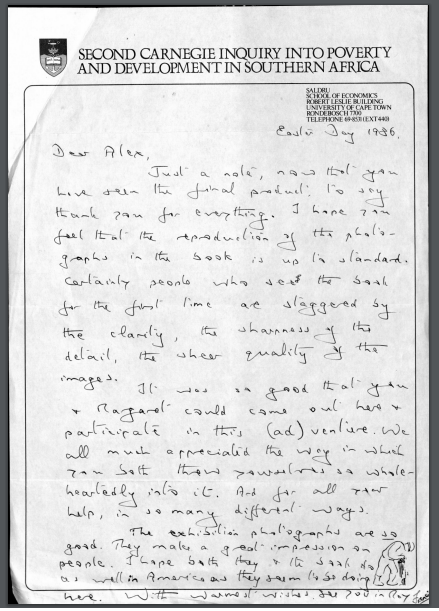 SECOND CARNEGIE INQUIRY INTO POVERTY
AND DEVELOPMENT IN SOUTHERN AFRICA
SALDRU
SCHOOL OF ECONOMICS
ROBERT LESLIE BUILDING
UNIVERSITY OF CAPE TOWN
RONDEBOSCH 7700
TELEPHONE 69-8531 (EXT 440)
Easter Day 1986.
Dear Alex,
Just a note, now that you
have seen the final product, to say
thank you for everything. I hope you
feel that the reproduction of the photo-
graphs in the book is up to standard.
Certainly people who see the book
for the first time are staggered by
the clarity, the sharpness of the
detail, the sheer quality of the
images.
It was so good that you
+ Margaret could come out here +
participate in this (ad)venture. We
all much appreciated the way in which
you both threw yourselves so whole-
heartedly into it. And for all your
help, in so many different ways.
The exhibition photographs are so
good. They make a great impression on
people. I hope both they + the book do
as well in America as they seem to be doing
here. With warmest wishes. See you in May